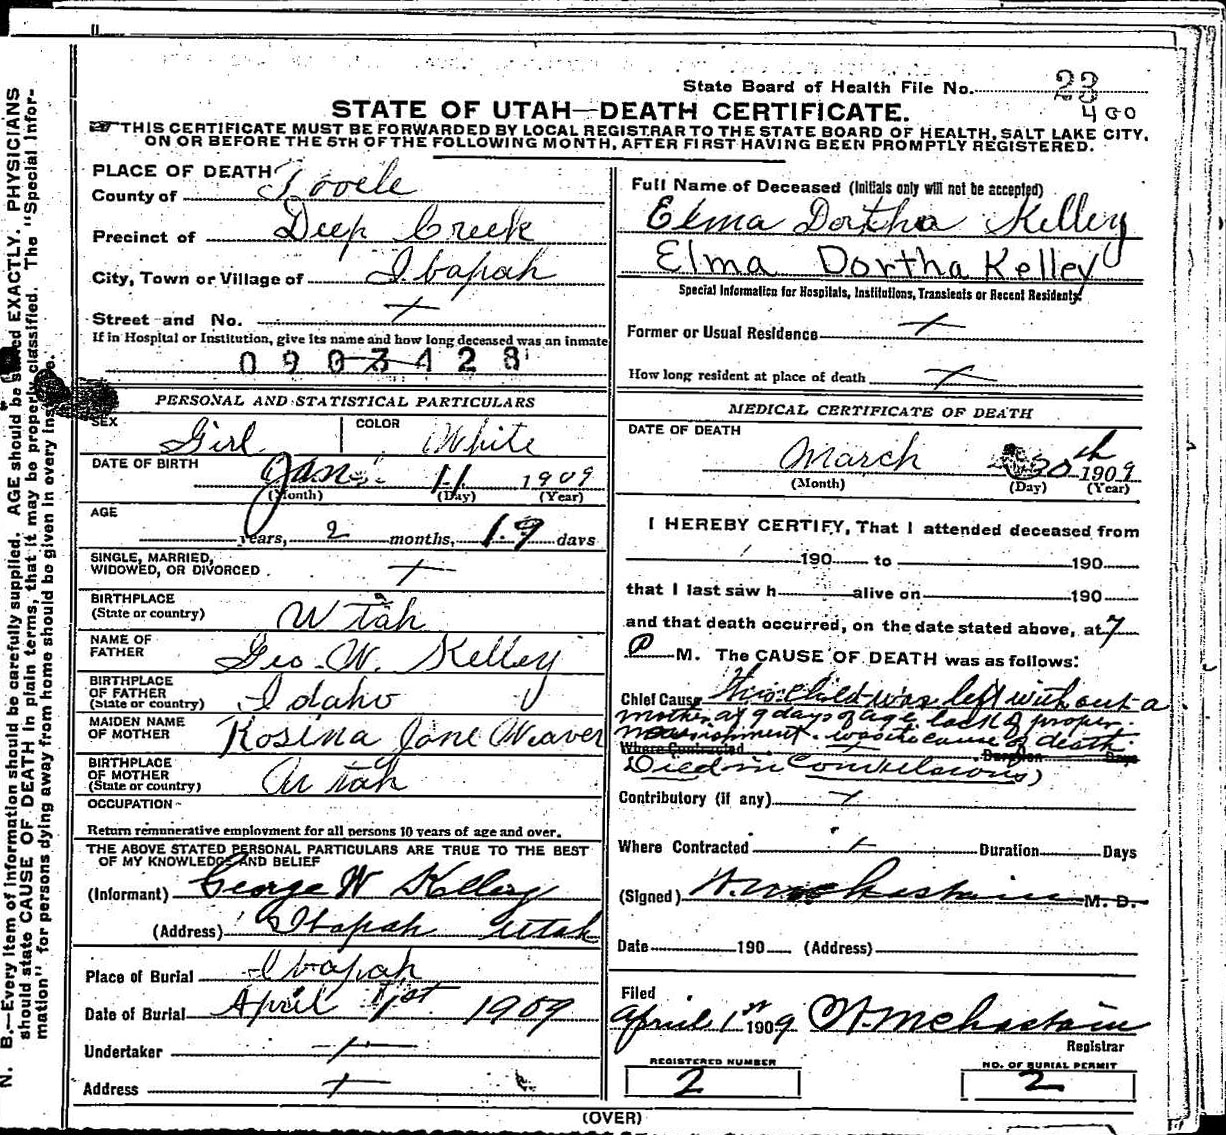 State Board of Health File No. 23
400
STATE OF UTAH—DEATH CERTIFICATE.
THIS CERTIFICATE MUST BE FORWARDED BY LOCAL REGISTRAR TO THE STATE BOARD OF HEALTH, SALT LAKE CITY,
ON OR BEFORE THE 5TH OF THE FOLLOWING MONTH, AFTER FIRST HAVING BEEN PROMPTLY REGISTERED.
N. B.—Every item of information should be carefully supplied. AGE should be stated EXACTLY. PHYSICIANS
should state CAUSE OF DEATH in plain terms, that it may be properly classified. The "Special Infor-
mation" for persons dying away from home should be given in every instance.
PLACE OF DEATH
County of Tooele
Precinct of Deep Creek
City, Town or Village of Ibapah
Street and No. +
If in Hospital or Institution, give its name and how long deceased was an inmate
0903428
PERSONAL AND STATISTICAL PARTICULARS
SEX Girl COLOR White
DATE OF BIRTH Jan. 11 1909
(Month) (Day) (Year)
AGE
years, 2 months, 19 days
SINGLE, MARRIED,
WIDOWED, OR DIVORCED +
BIRTHPLACE
(State or country) Utah
NAME OF
FATHER Geo. W. Kelley
BIRTHPLACE
OF FATHER
(State or country) Idaho
MAIDEN NAME
OF MOTHER Rosina Jane Weaver
BIRTHPLACE
OF MOTHER
(State or country) Utah
OCCUPATION
Return remunerative employment for all persons 10 years of age and over.
THE ABOVE STATED PERSONAL PARTICULARS ARE TRUE TO THE BEST
OF MY KNOWLEDGE AND BELIEF
(Informant) George W Kelley
(Address) Ibapah Utah
Place of Burial Ibapah
Date of Burial April 1st 1909
Undertaker +
Address +
Full Name of Deceased (Initials only will not be accepted)
Elma Dortha Kelley
Elma Dortha Kelley
Special Information for Hospitals, Institutions, Transients or Recent Residents.
Former or Usual Residence +
How long resident at place of death +
MEDICAL CERTIFICATE OF DEATH
DATE OF DEATH
March 30th 1909
(Month) (Day) (Year)
I HEREBY CERTIFY, That I attended deceased from
190 to 190
that I last saw h alive on 190
and that death occurred, on the date stated above, at 7
P M. The CAUSE OF DEATH was as follows:
Chief Cause this child was left without a
mother at 9 days of age. lack of proper
nourishment. was to cause of death.
Where Contracted + Duration Days
Died in Convulsions)
Contributory (if any) +
Where Contracted + Duration Days
(Signed) M. D.
Date 190 (Address)
Filed
April 1st 1909
Registrar
REGISTERED NUMBER
2
NO. OF BURIAL PERMIT
2
(OVER)